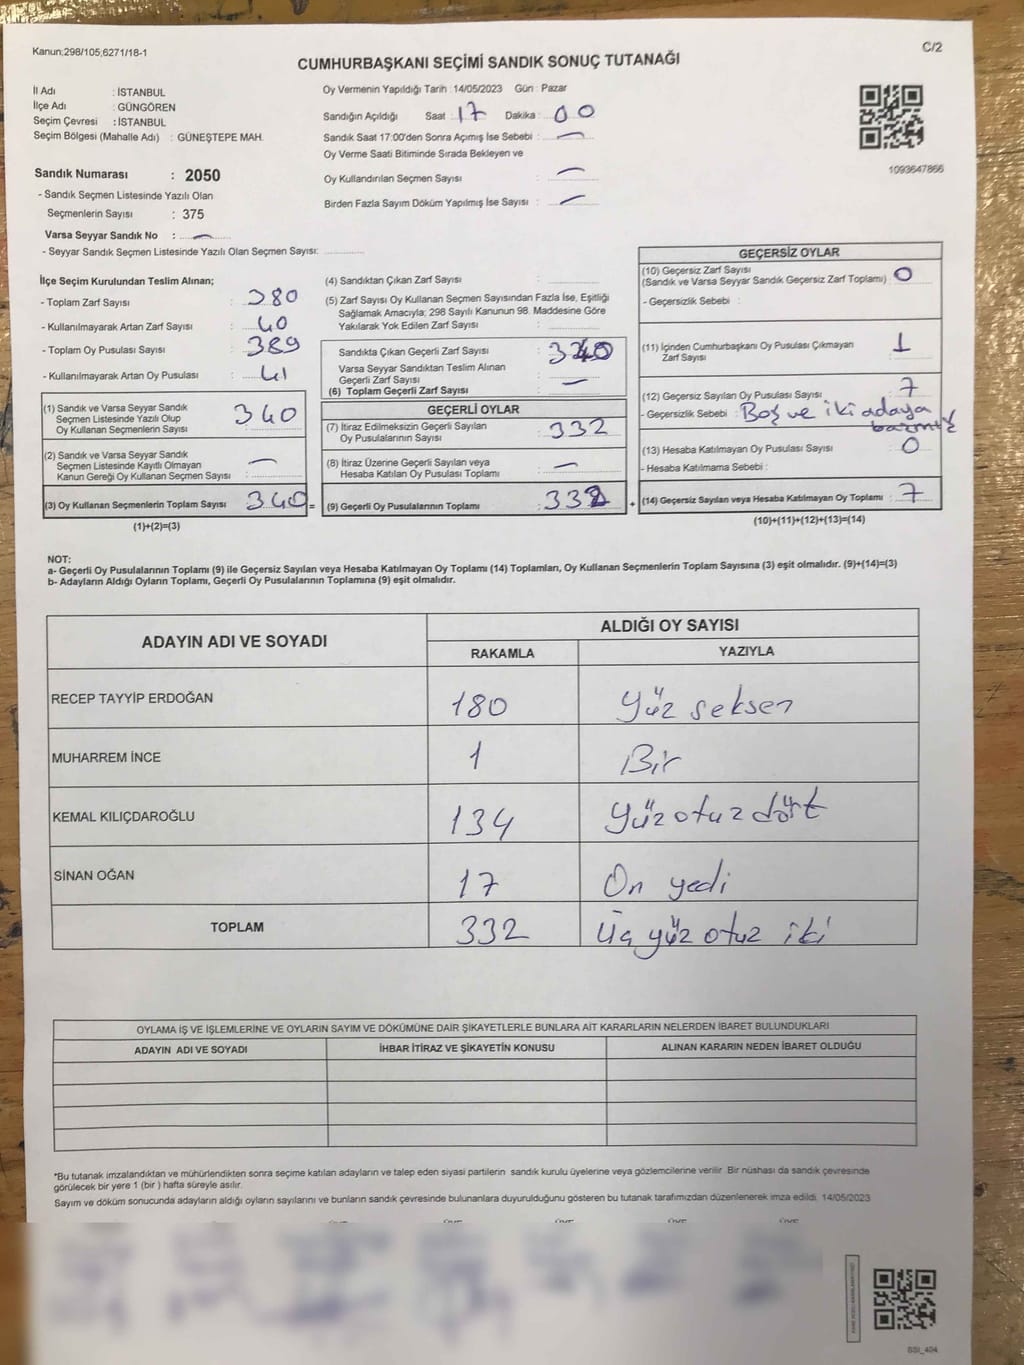 Kanun;298/105;6271/18-1
C/2
CUMHURBAŞKANI SEÇİMİ SANDIK SONUÇ TUTANAĞI
İl Adı : İSTANBUL
İlçe Adı : GÜNGÖREN
Seçim Çevresi : İSTANBUL
Seçim Bölgesi (Mahalle Adı) : GÜNEŞTEPE MAH.
Oy Vermenin Yapıldığı Tarih : 14/05/2023 Gün : Pazar
Sandığın Açıldığı Saat : 17 Dakika : 00
Sandık Saat 17:00'den Sonra Açımış İse Sebebi : —
Oy Verme Saati Bitiminde Sırada Bekleyen ve
Oy Kullandırılan Seçmen Sayısı : —
Birden Fazla Sayım Döküm Yapılmış İse Sayısı : —
1093647866
Sandık Numarası : 2050
- Sandık Seçmen Listesinde Yazılı Olan
Seçmenlerin Sayısı : 375
Varsa Seyyar Sandık No : —
- Seyyar Sandık Seçmen Listesinde Yazılı Olan Seçmen Sayısı:
İlçe Seçim Kurulundan Teslim Alınan;
- Toplam Zarf Sayısı : 380
- Kullanılmayarak Artan Zarf Sayısı : 40
- Toplam Oy Pusulası Sayısı : 389
- Kullanılmayarak Artan Oy Pusulası : 41
(1) Sandık ve Varsa Seyyar Sandık
Seçmen Listesinde Yazılı Olup
Oy Kullanan Seçmenlerin Sayısı : 340
(2) Sandık ve Varsa Seyyar Sandık
Seçmen Listesinde Kayıtlı Olmayan
Kanun Gereği Oy Kullanan Seçmen Sayısı : —
(3) Oy Kullanan Seçmenlerin Toplam Sayısı : 340
(1)+(2)=(3)
(4) Sandıktan Çıkan Zarf Sayısı :
(5) Zarf Sayısı Oy Kullanan Seçmen Sayısından Fazla İse, Eşitliği
Sağlamak Amacıyla; 298 Sayılı Kanunun 98. Maddesine Göre
Yakılarak Yok Edilen Zarf Sayısı :
Sandıkta Çıkan Geçerli Zarf Sayısı : 340
Varsa Seyyar Sandıktan Teslim Alınan
Geçerli Zarf Sayısı : —
(6) Toplam Geçerli Zarf Sayısı :
GEÇERLİ OYLAR
(7) İtiraz Edilmeksizin Geçerli Sayılan
Oy Pusulalarının Sayısı : 332
(8) İtiraz Üzerine Geçerli Sayılan veya
Hesaba Katılan Oy Pusulası Toplamı : —
= (9) Geçerli Oy Pusulalarının Toplamı : 332
GEÇERSİZ OYLAR
(10) Geçersiz Zarf Sayısı
(Sandık ve Varsa Seyyar Sandık Geçersiz Zarf Toplamı) : 0
- Geçersizlik Sebebi :
(11) İçinden Cumhurbaşkanı Oy Pusulası Çıkmayan
Zarf Sayısı : 1
(12) Geçersiz Sayılan Oy Pusulası Sayısı : 7
- Geçersizlik Sebebi : Boş ve iki adaya
(13) Hesaba Katılmayan Oy Pusulası Sayısı : 0
- Hesaba Katılmama Sebebi :
+ (14) Geçersiz Sayılan veya Hesaba Katılmayan Oy Toplamı : 7
(10)+(11)+(12)+(13)=(14)
NOT:
a- Geçerli Oy Pusulalarının Toplamı (9) ile Geçersiz Sayılan veya Hesaba Katılmayan Oy Toplamı (14) Toplamları, Oy Kullanan Seçmenlerin Toplam Sayısına (3) eşit olmalıdır. (9)+(14)=(3)
b- Adayların Aldığı Oyların Toplamı, Geçerli Oy Pusulalarının Toplamına (9) eşit olmalıdır.
ADAYIN ADI VE SOYADI
ALDIĞI OY SAYISI
RAKAMLA YAZIYLA
RECEP TAYYİP ERDOĞAN 180 Yüz seksen
MUHARREM İNCE 1 Bir
KEMAL KILIÇDAROĞLU 134 Yüzotuzdört
SİNAN OĞAN 17 On yedi
TOPLAM 332 Üç yüz otuz iki
OYLAMA İŞ VE İŞLEMLERİNE VE OYLARIN SAYIM VE DÖKÜMÜNE DAİR ŞİKAYETLERLE BUNLARA AİT KARARLARIN NELERDEN İBARET BULUNDUKLARI
ADAYIN ADI VE SOYADI İHBAR İTİRAZ VE ŞİKAYETİN KONUSU ALINAN KARARIN NEDEN İBARET OLDUĞU
*Bu tutanak imzalandıktan ve mühürlendikten sonra seçime katılan adayların ve talep eden siyasi partilerin sandık kurulu üyelerine veya gözlemcilerine verilir. Bir nüshası da sandık çevresinde
görülecek bir yere 1 (bir ) hafta süreyle asılır.
Sayım ve döküm sonucunda adayların aldığı oyların sayılarını ve bunların sandık çevresinde bulunanlara duyurulduğunu gösteren bu tutanak tarafımızdan düzenlenerek imza edildi. 14/05/2023
SSI_404